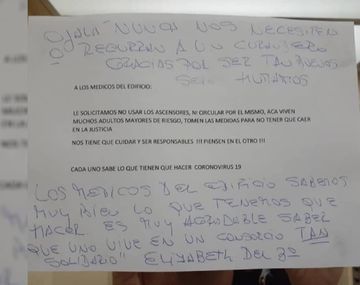 OJALÁ NUNCA NOS NECESITEN
O RECURRAN A UN CURANDERO
GRACIAS POR SER TAN BUENOS
SERES HUMANOS
A LOS MEDICOS DEL EDIFICIO:
LE SOLICITAMOS NO USAR LOS ASCENSORES, NI CIRCULAR POR EL MISMO, ACA VIVEN
MUCHOS ADULTOS MAYORES DE RIESGO, TOMEN LAS MEDIDAS PARA NO TENER QUE CAER
EN LA JUSTICIA
NOS TIENE QUE CUIDAR Y SER RESPONSABLES !!! PIENSEN EN EL OTRO !!!
CADA UNO SABE LO QUE TIENEN QUE HACER CORONOVIRUS 19
LOS MEDICOS DEL EDIFICIO SABEMOS
MUY BIEN LO QUE TENEMOS QUE
HACER ES MUY AGRADABLE SABER
QUE UNO VIVE EN UN CONSORCIO TAN
"SOLIDARIO" ELIZABETH DEL 3º